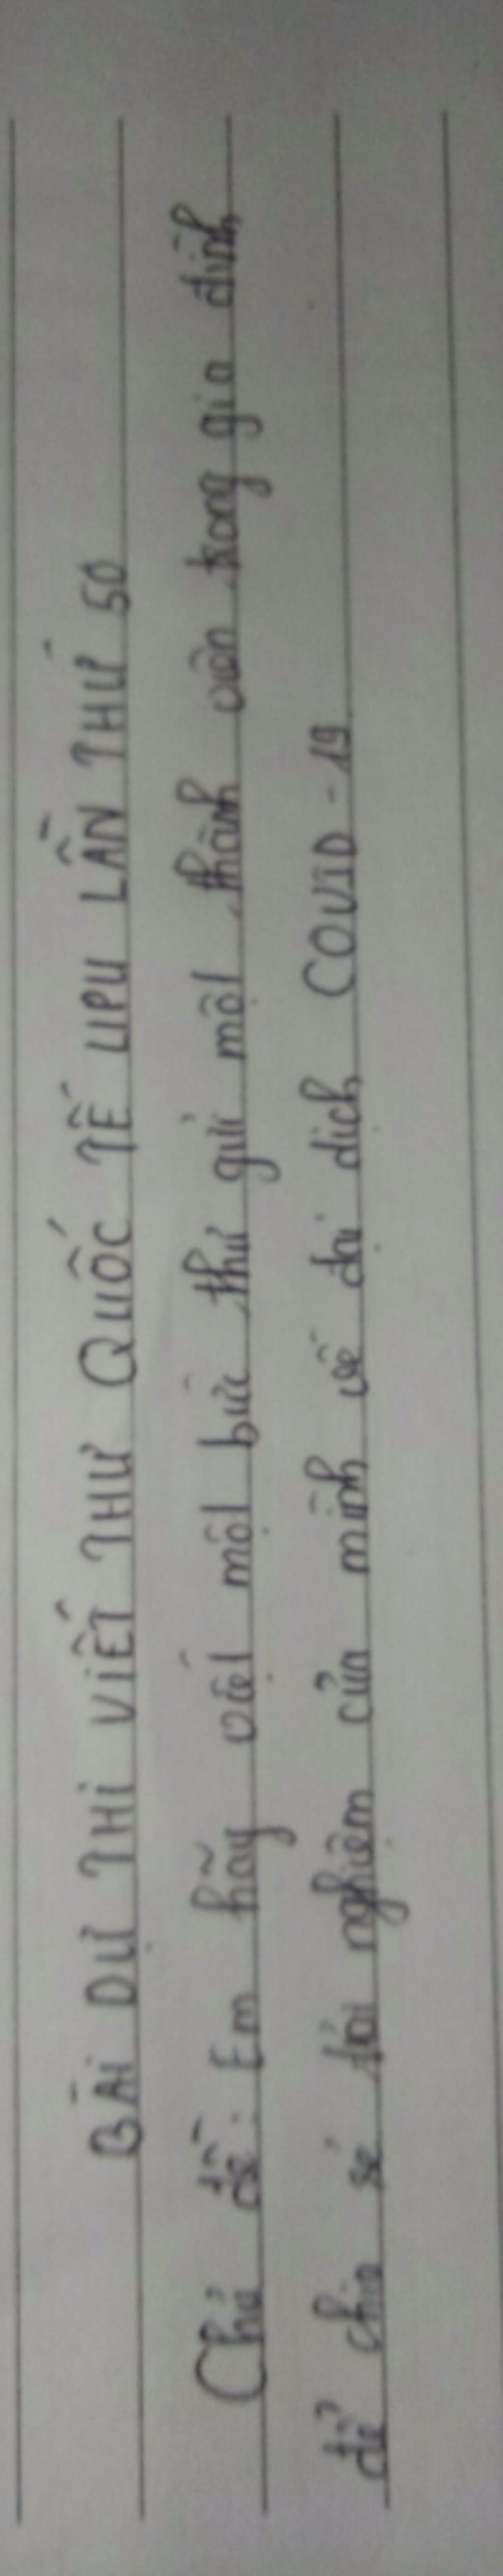 BÀI DỰ THI VIẾT THƯ QUỐC TẾ UPU LẦN THỨ 50
Chủ đề: Em hãy viết một bức thư gửi một thành viên trong gia đình
để chia sẻ trải nghiệm của mình về đại dịch COVID-19